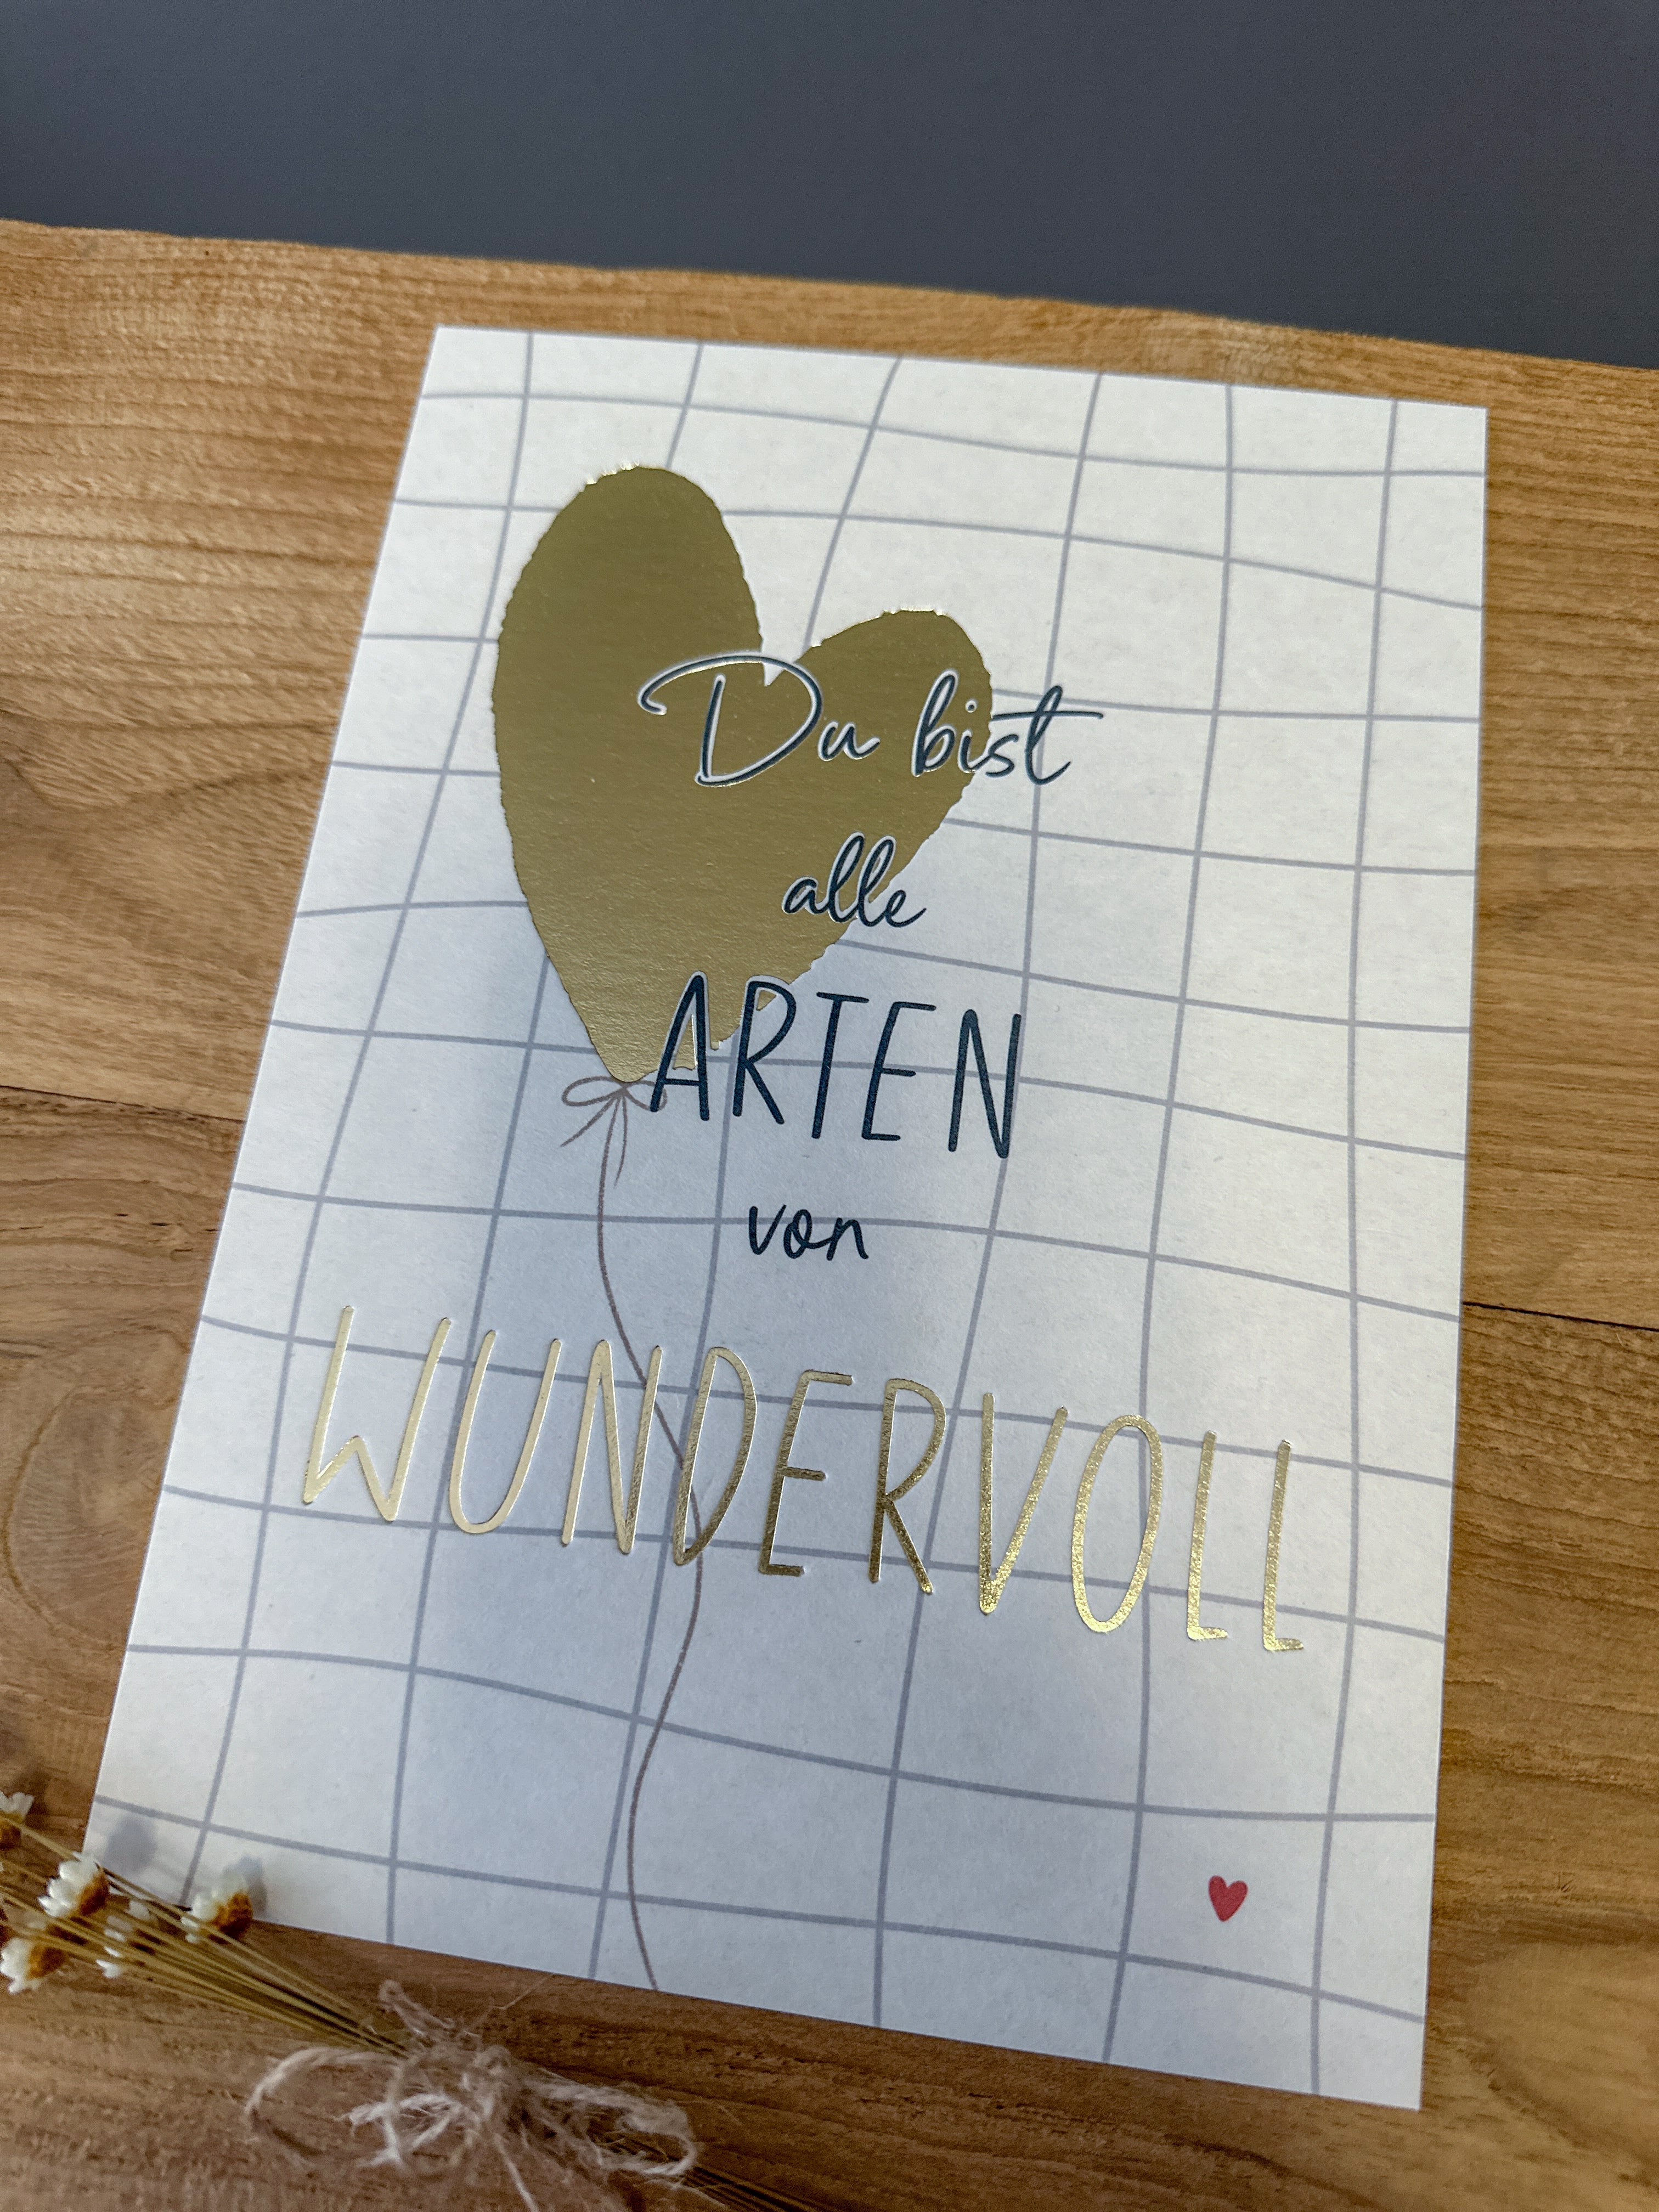 Du bist
alle
ARTEN
von
WUNDERVOLL